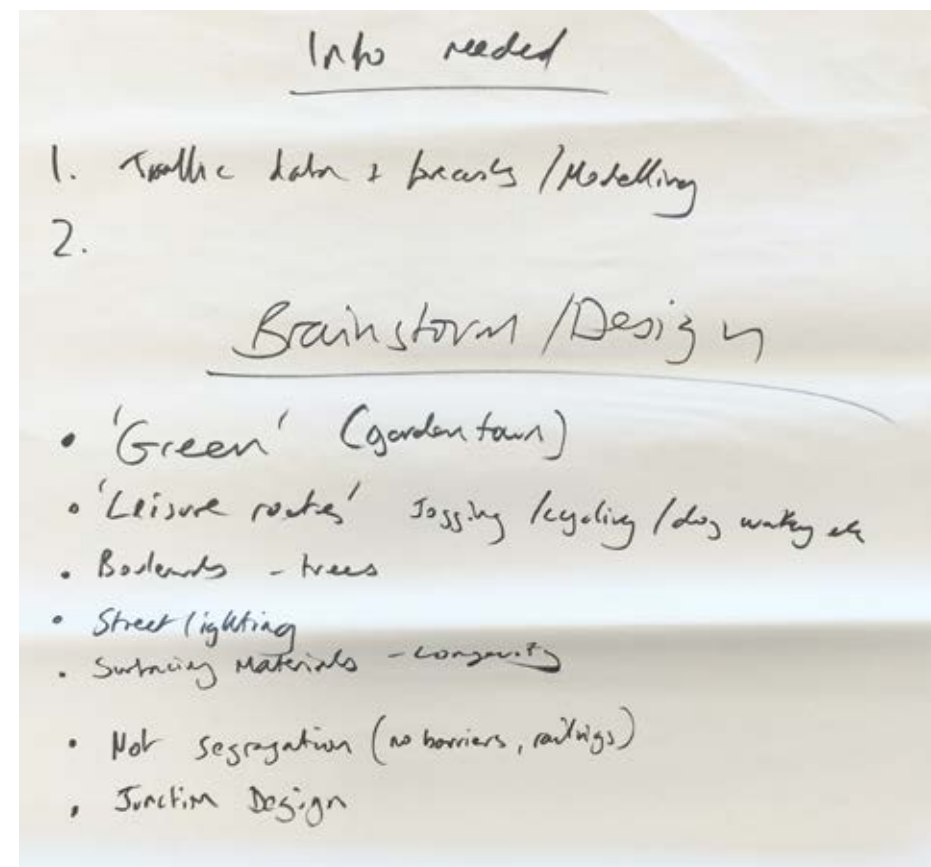 Info needed
1. Traffic data + forecasts / Modelling
2.
Brainstorm / Design
• 'Green' (garden town)
• 'Leisure routes' Jogging / cycling / dog walking etc
• Boulevards - trees
• Street lighting
• Surfacing Materials - Longevity
• Not segragation (no barriers, railings)
• Junction Design